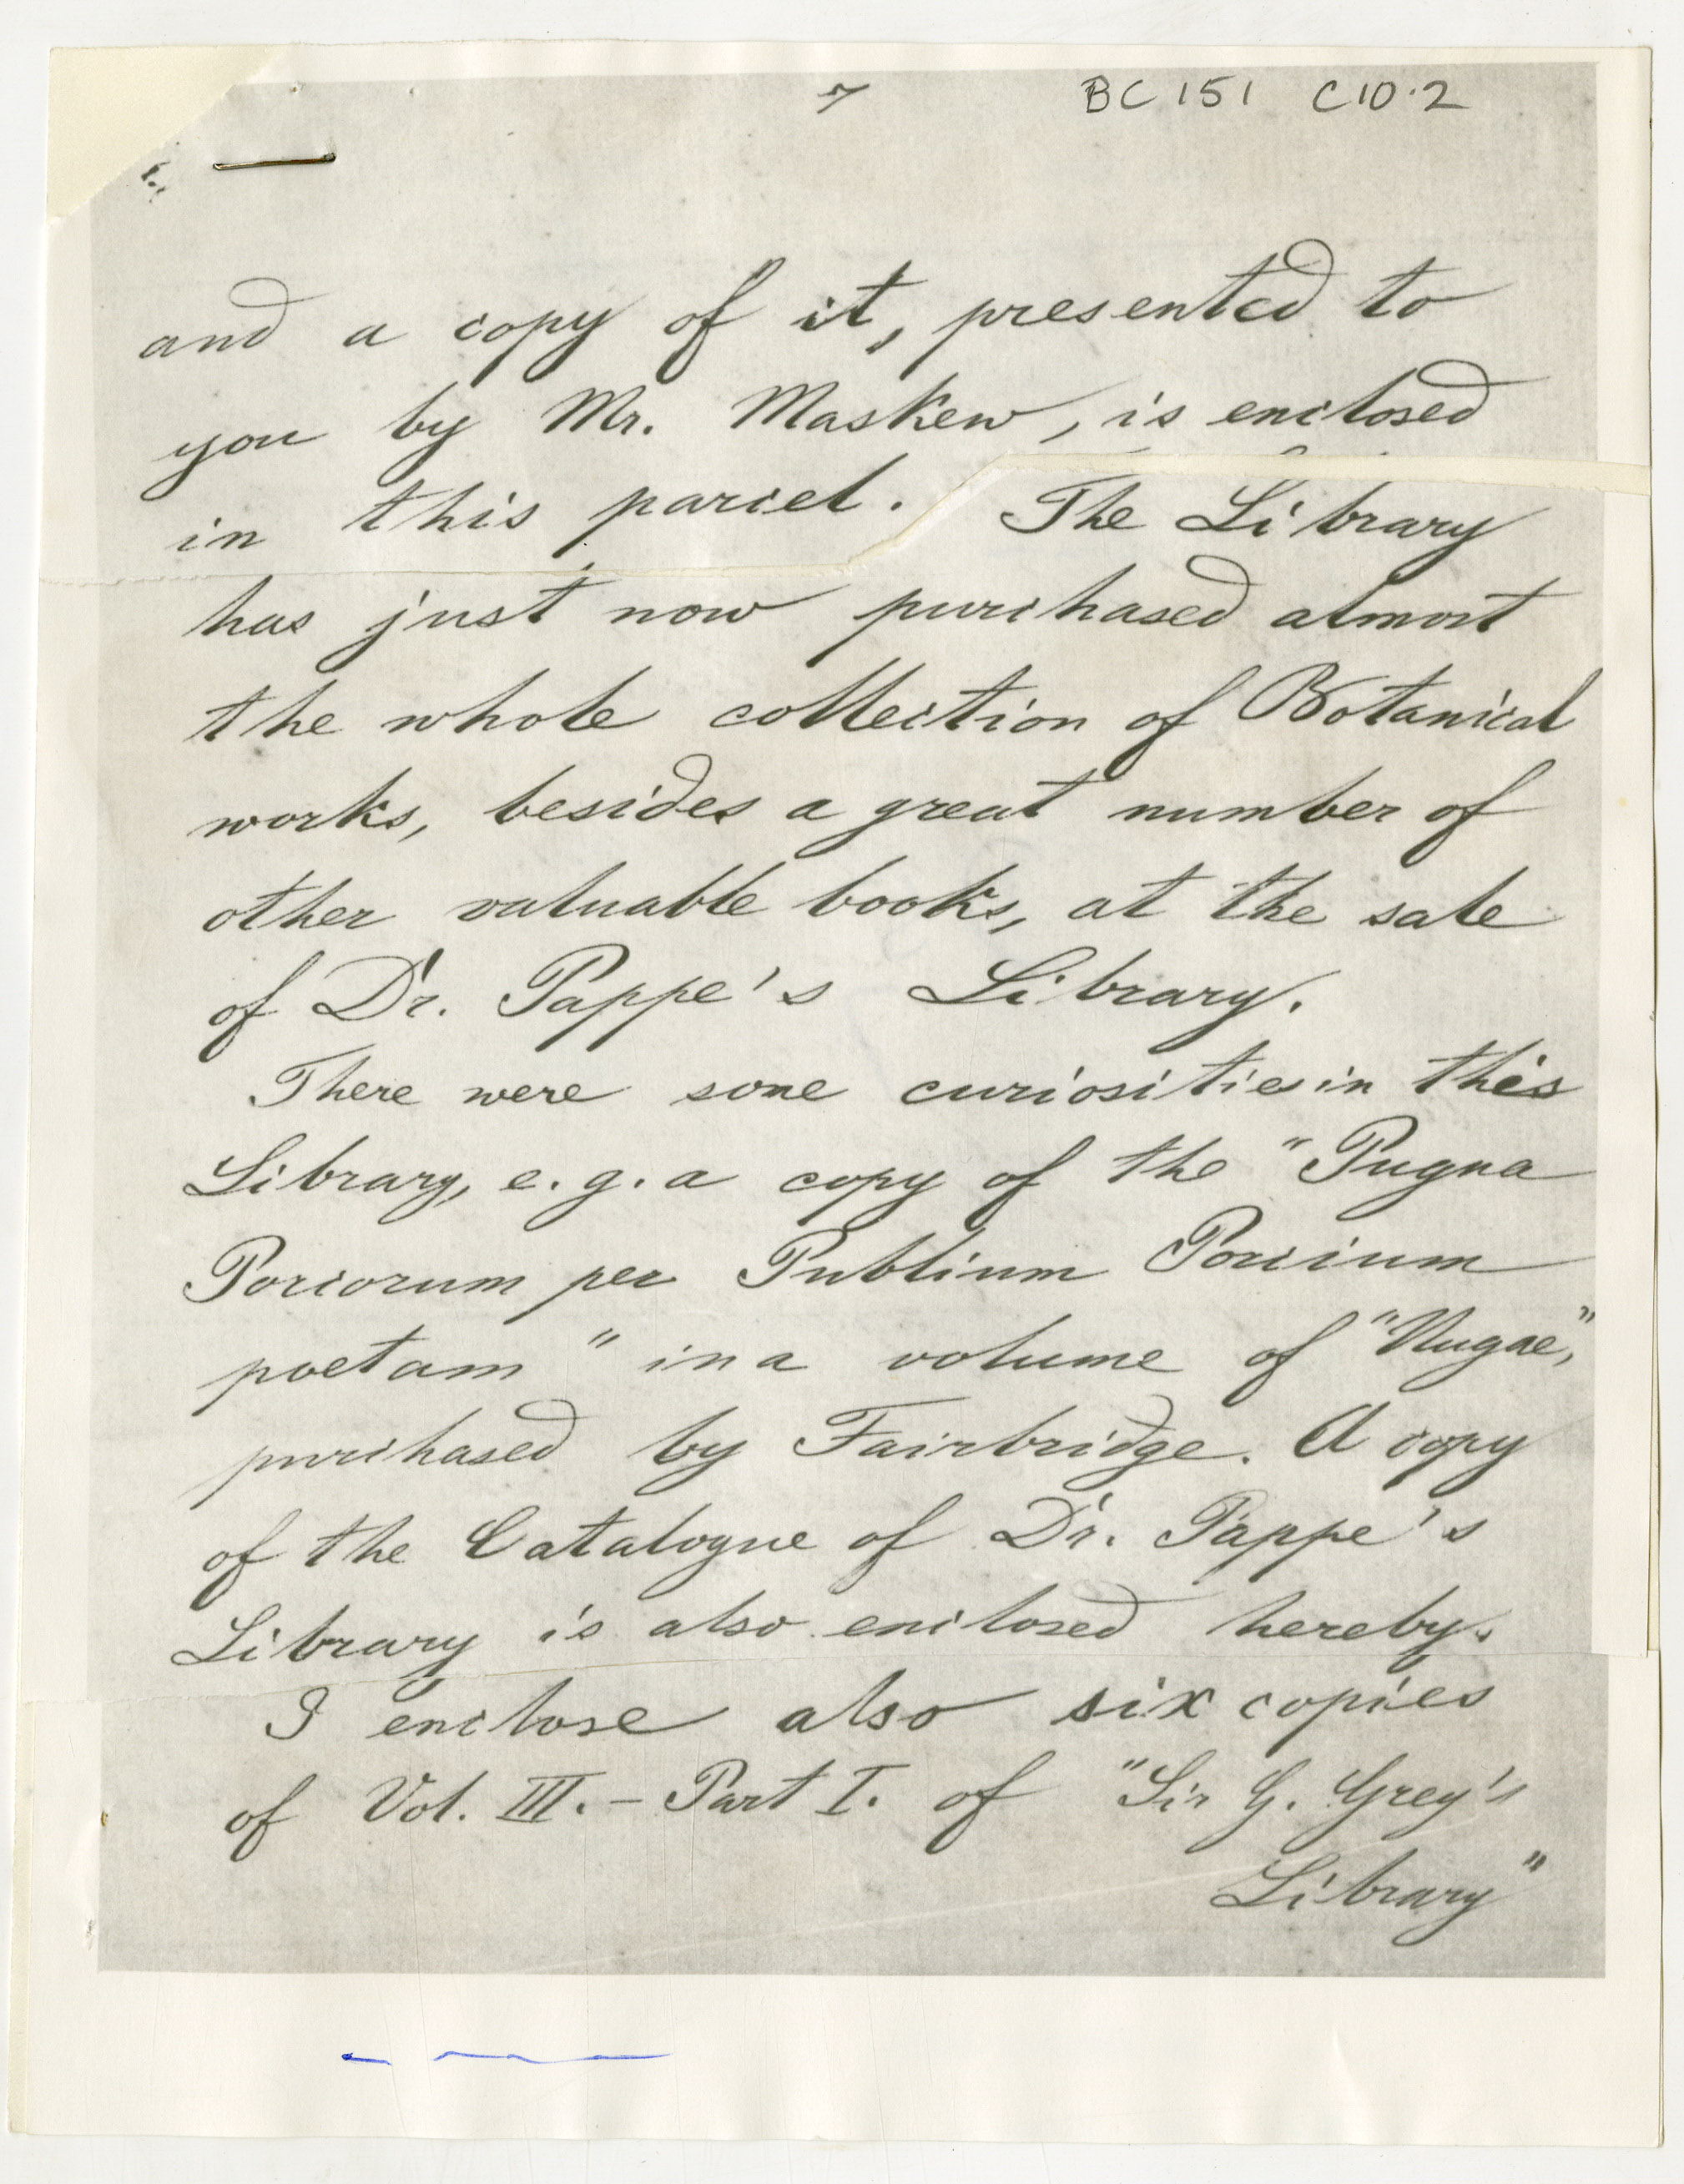 7
BC 151 C10.2
and a copy of it, presented to
you by Mr. Maskew, is enclosed
in this parcel. The Library
has just now purchased almost
the whole collection of Botanical
works, besides a great number of
other valuable books, at the sale
of Dr. Pappe's Library.
There were some curiosities in this
Library, e.g. a copy of the "Pugna
Porcorum per Publium Porcium
poetam" in a volume of "Nugae",
purchased by Fairbridge. A copy
of the Catalogue of Dr. Pappe's
Library is also enclosed hereby.
I enclose also six copies
of Vol. III. - Part I. of "Sir G. Grey's
Library"